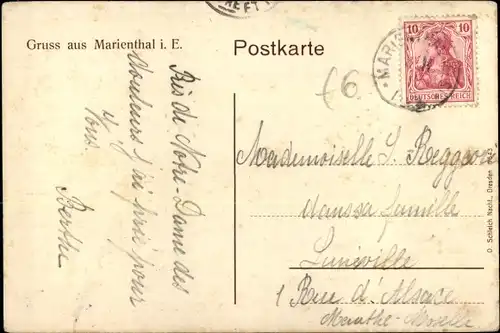 Gruss aus Marienthal i. E.
Postkarte
10 10
DEUTSCHES REICH
MARIEN
f6
Près de Notre-Dame des
douleurs j'ai prié pour
Vous
Berthe
Mademoiselle S.
dans sa famille
Lunéville
1 Rue d'Alsace
Meurthe-Moselle
D. Schleich Nachf., Dresden